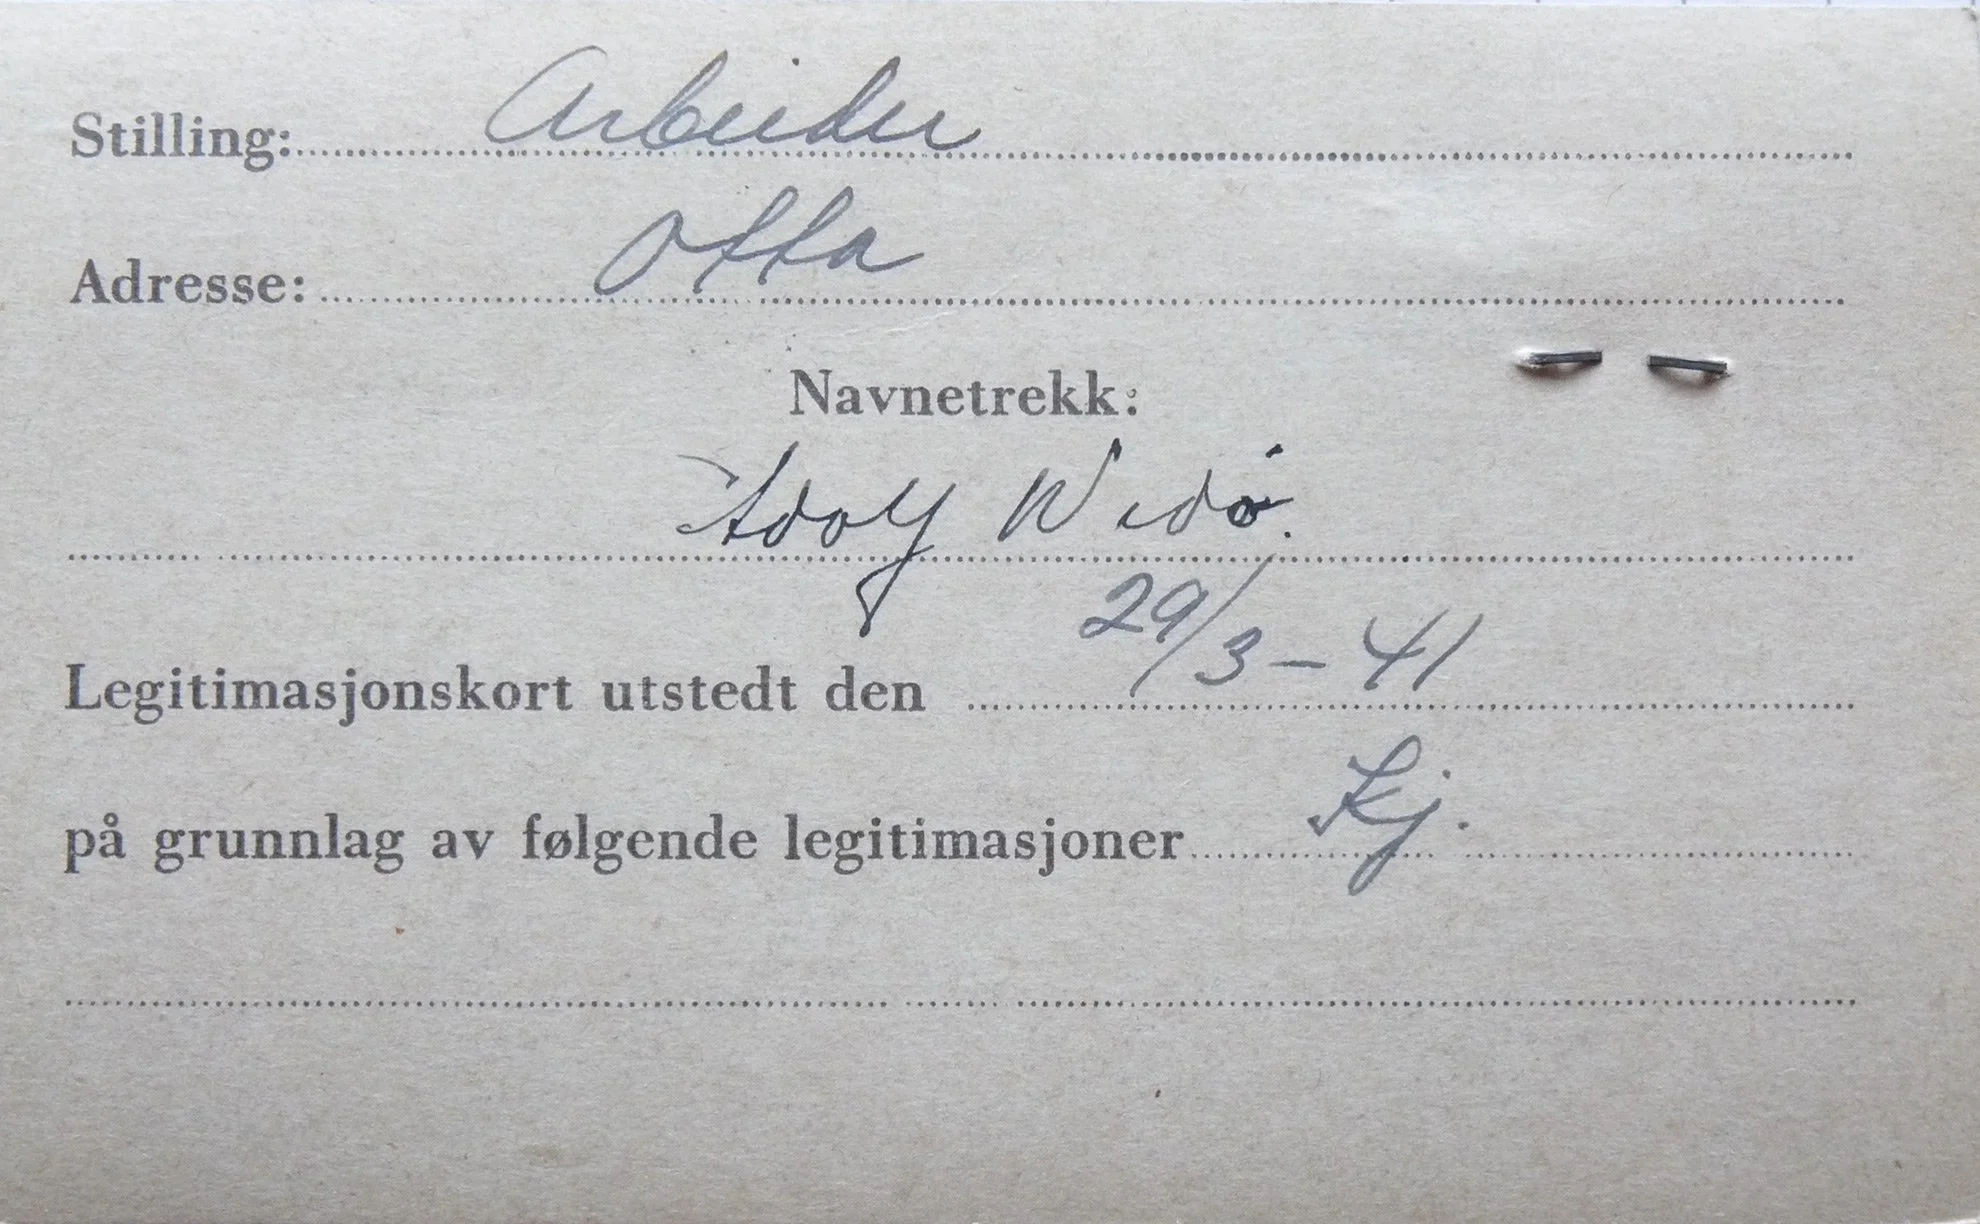 Stilling: Arbeider
Adresse: Otta
Navnetrekk:
Adolf Widö.
Legitimasjonskort utstedt den 29/3-41
på grunnlag av følgende legitimasjoner Kj.